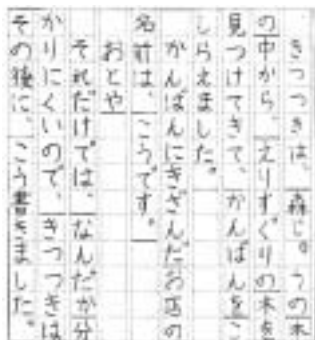 きつつきは、森じゅうの木
の中から、えりすぐりの木を
見つけてきて、かんばんをこ
しらえました。
かんばんにきざんだお店の
名前は、こうです。
おとや
それだけでは、なんだか分
かりにくいので、きつつきは
その後に、こう書きました。